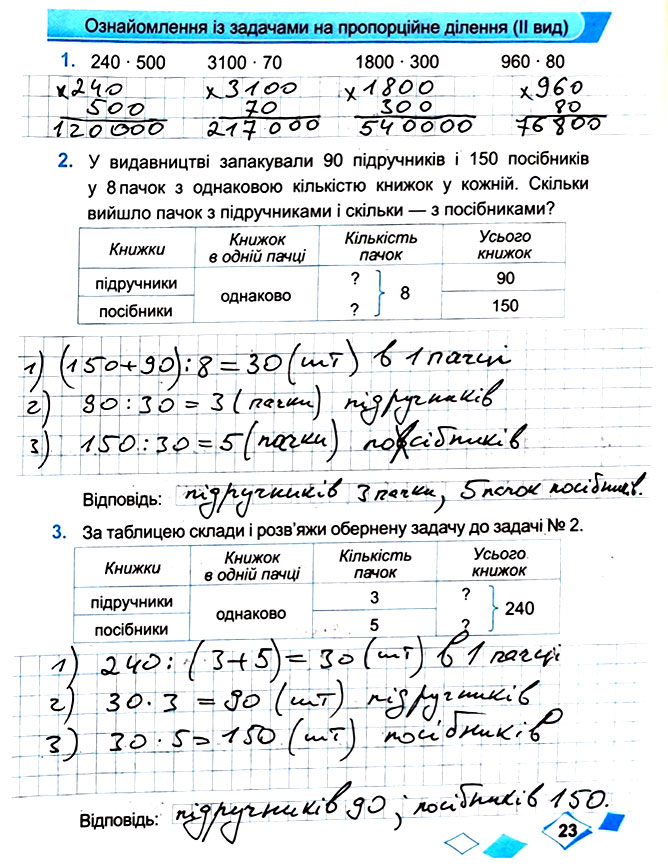 Ознайомлення із задачами на пропорційне ділення (II вид)
1. 240 · 500 3100 · 70 1800 · 300 960 · 80
×240 ×3100 ×1800 ×960
500 70 300 80
120000 217000 540000 76800
2. У видавництві запакували 90 підручників і 150 посібників
у 8 пачок з однаковою кількістю книжок у кожній. Скільки
вийшло пачок з підручниками і скільки — з посібниками?
Книжки Книжок в одній пачці Кількість пачок Усього книжок
підручники однаково ? 8 90
посібники ? 150
1) (150+90):8=30 (шт) в 1 пачці
2) 90:30=3 (пачки) підручників
3) 150:30=5 (пачки) посібників
Відповідь: підручників 3 пачки, 5 пачок посібників.
3. За таблицею склади і розв'яжи обернену задачу до задачі № 2.
Книжки Книжок в одній пачці Кількість пачок Усього книжок
підручники однаково 3 ? 240
посібники 5 ?
1) 240:(3+5)=30 (шт) в 1 пачці
2) 30·3=90 (шт) підручників
3) 30·5=150 (шт) посібників
Відповідь: підручників 90; посібників 150.
23